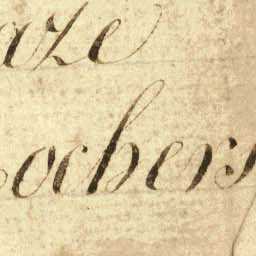 aze
ochers